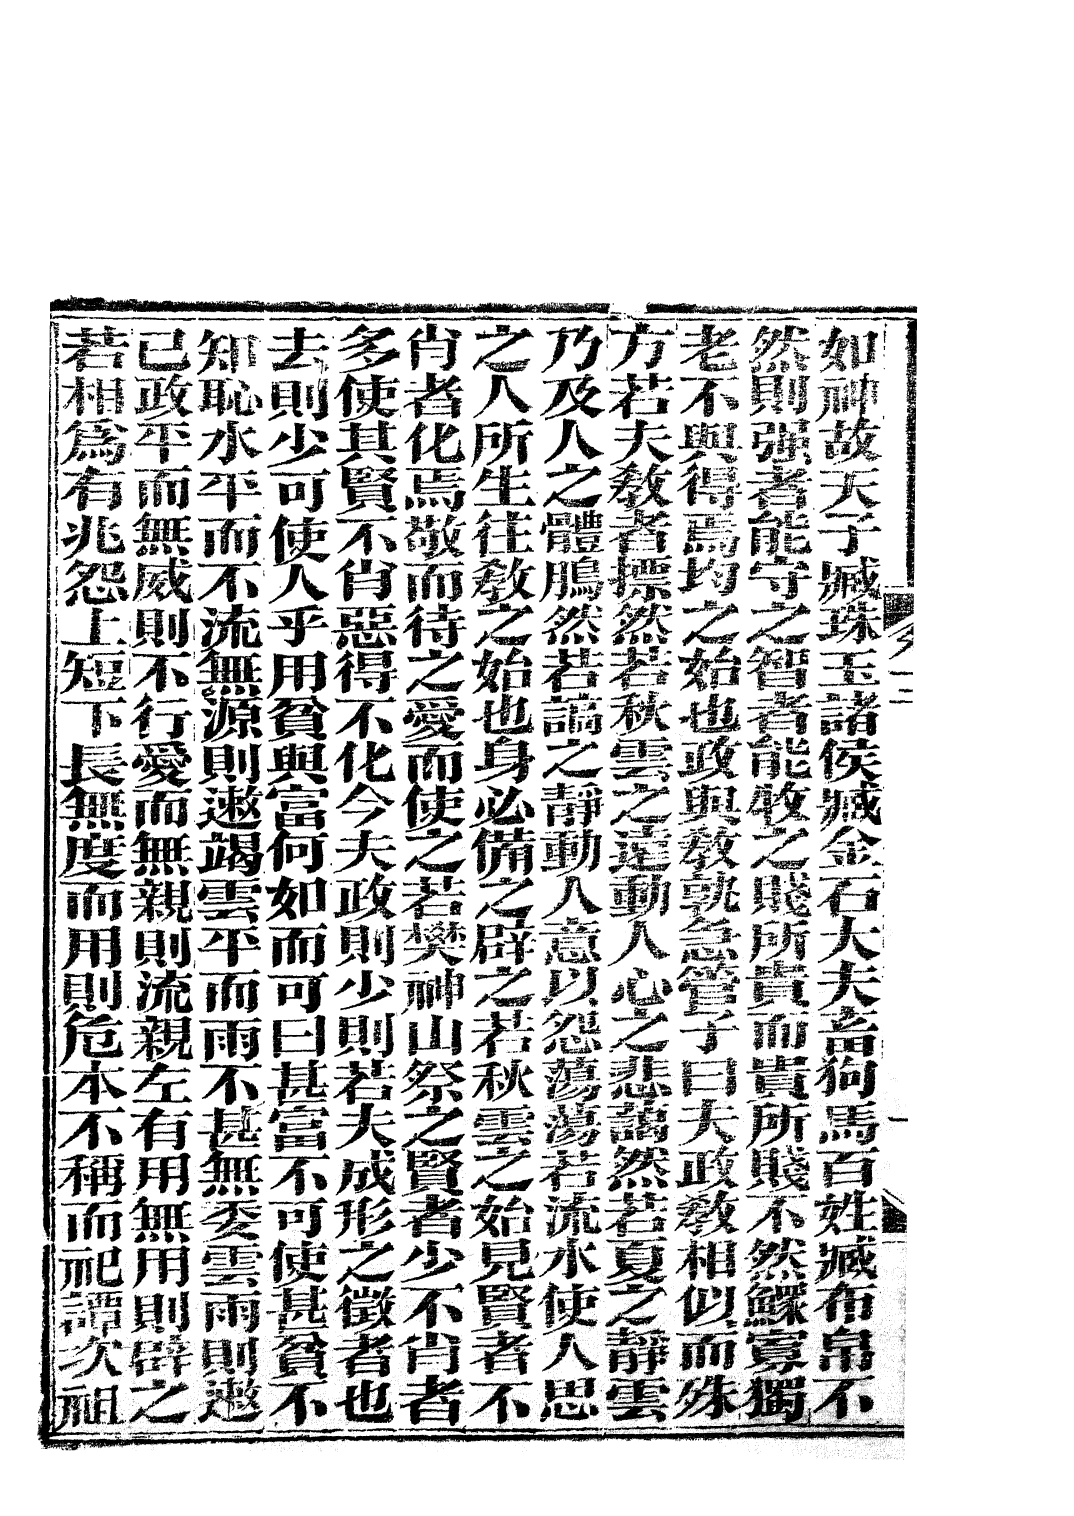 如神故天子臧珠玉諸侯臧金石大夫畜狗馬百姓臧布帛不
然則强者能守之智者能牧之賤所貴而貴所賤不然鰥寡獨
老不與得焉均之始也政與教孰急管子曰夫政教相似而殊
方若夫教者摽然若秋雲之遠動人心之悲藹然若夏之靜雲
乃及人之體鵰然若謞之靜動人意以怨蕩蕩若流水使人思
之人所生往教之始也身必備之辟之若秋雲之始見賢者不
肖者化焉敬而待之愛而使之若樊神山祭之賢者少不肖者
多使其賢不肖惡得不化今夫政則少則若夫成形之徵者也
去則少可使人乎用貧與富何如而可曰甚富不可使甚貧不
知恥水平而不流無源則遬竭雲平而雨不甚無委雲雨則遬
已政平而無威則不行愛而無親則流親左有用無用則辟之
若相爲有兆怨上短下長無度而用則危本不稱而祀譚次祖